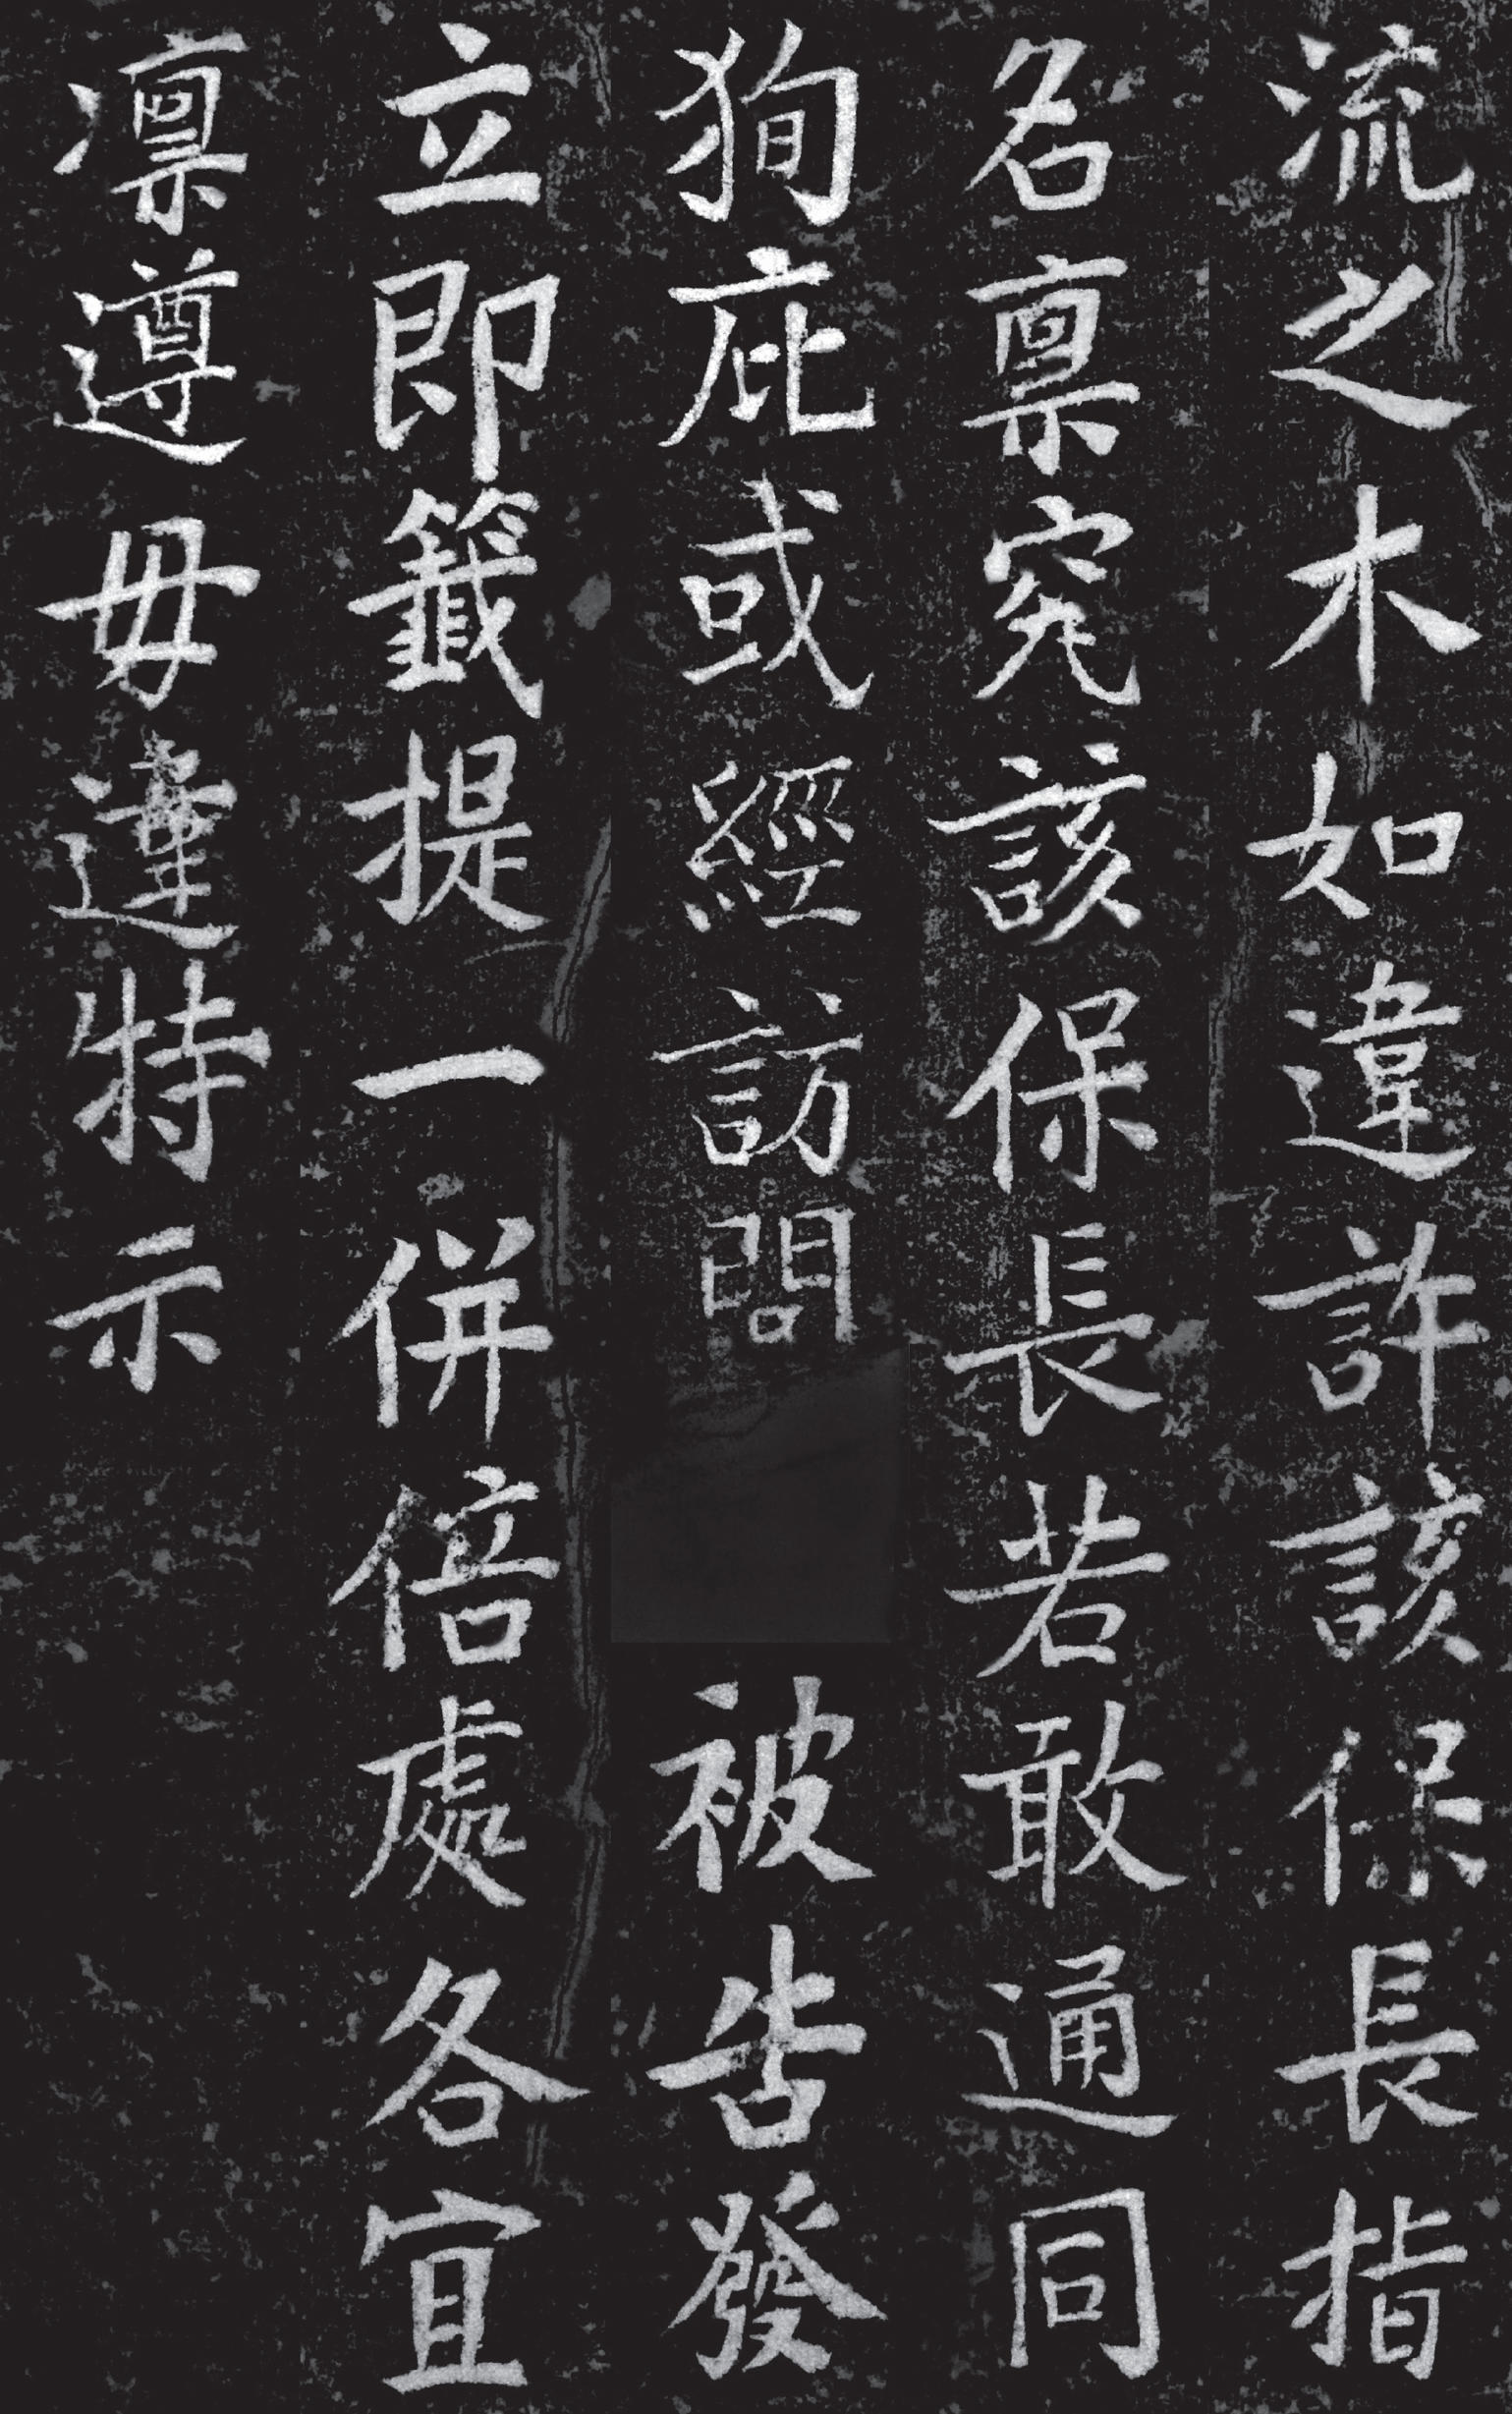 流之木如違許該保長指
名稟究該保長若敢通同
狥庇或經訪聞被告發
立即籤提一併倍處各宜
凛遵毋違特示